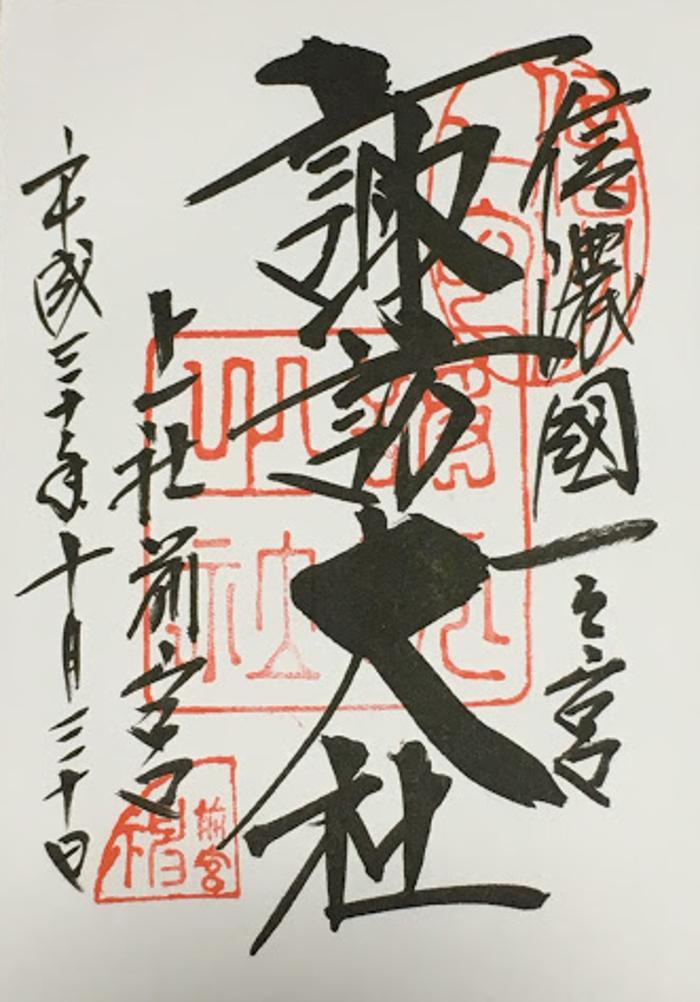 信濃國一之宮
諏訪大社
上社前宮
平成三十年十月三十日
前宮